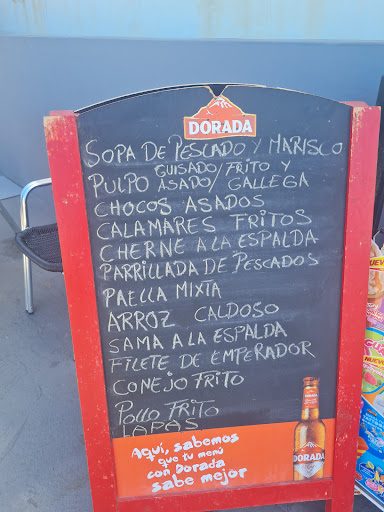 DORADA
SOPA DE PESCADO Y MARISCO
GUISADO/FRITO Y
PULPO ASADO/ GALLEGA
CHOCOS ASADOS
CALAMARES FRITOS
CHERNE A LA ESPALDA
PARRILLADA DE PESCADOS
PAELLA MIXTA
ARROZ CALDOSO
SAMA A LA ESPALDA
FILETE DE EMPERADOR
CONEJO FRITO
POLLO FRITO
LAPAS
Aquí, sabemos
que tu menú
con Dorada
sabe mejor
DORADA